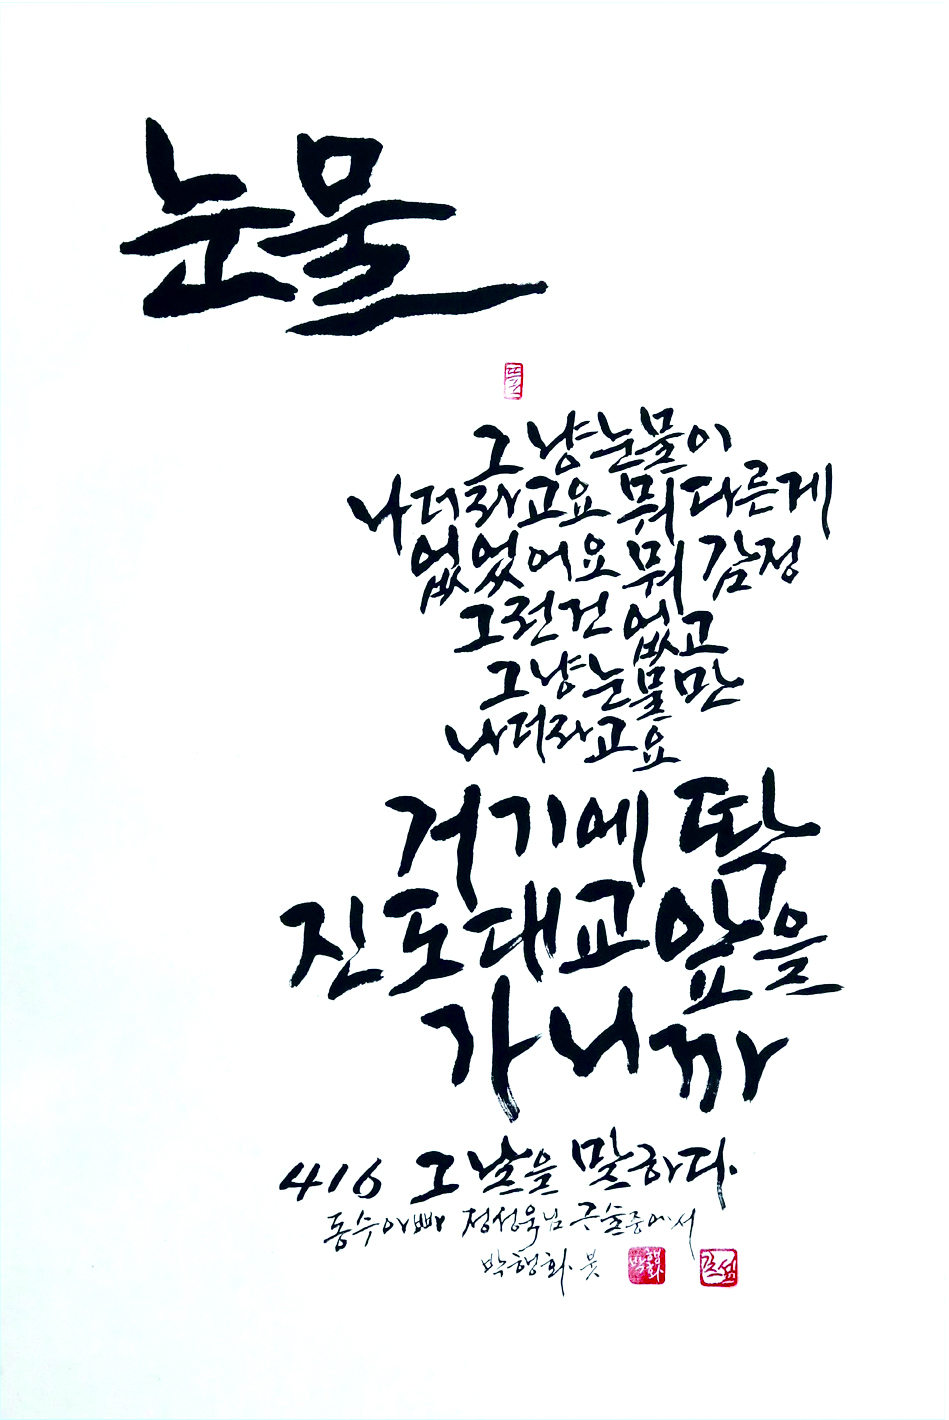 눈물
뜰
그냥 눈물이
나더라고요 뭐 다른게
없었어요 뭐 감정
그런건 없고
그냥 눈물만
나더라고요
거기에 딱
진도대교 앞을
가니까
416 그날을 말하다.
동수아빠 정성욱님 구술중에서
박행화 붓